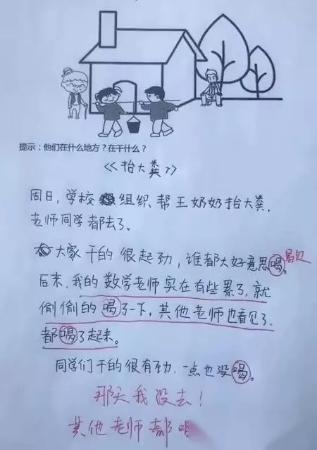 提示：他们在什么地方？在干什么？
《抬大粪》
周日，学校组织、帮王奶奶抬大粪，
老师同学都去了。
大家干的很起劲，谁都不好意思喝。
后来，我的数学老师实在有些累了，就
偷偷的喝了一下，其他老师也看见了，
都喝了起来。
同学们干的很有劲，一点也没喝。
那天我没去！
其他老师都